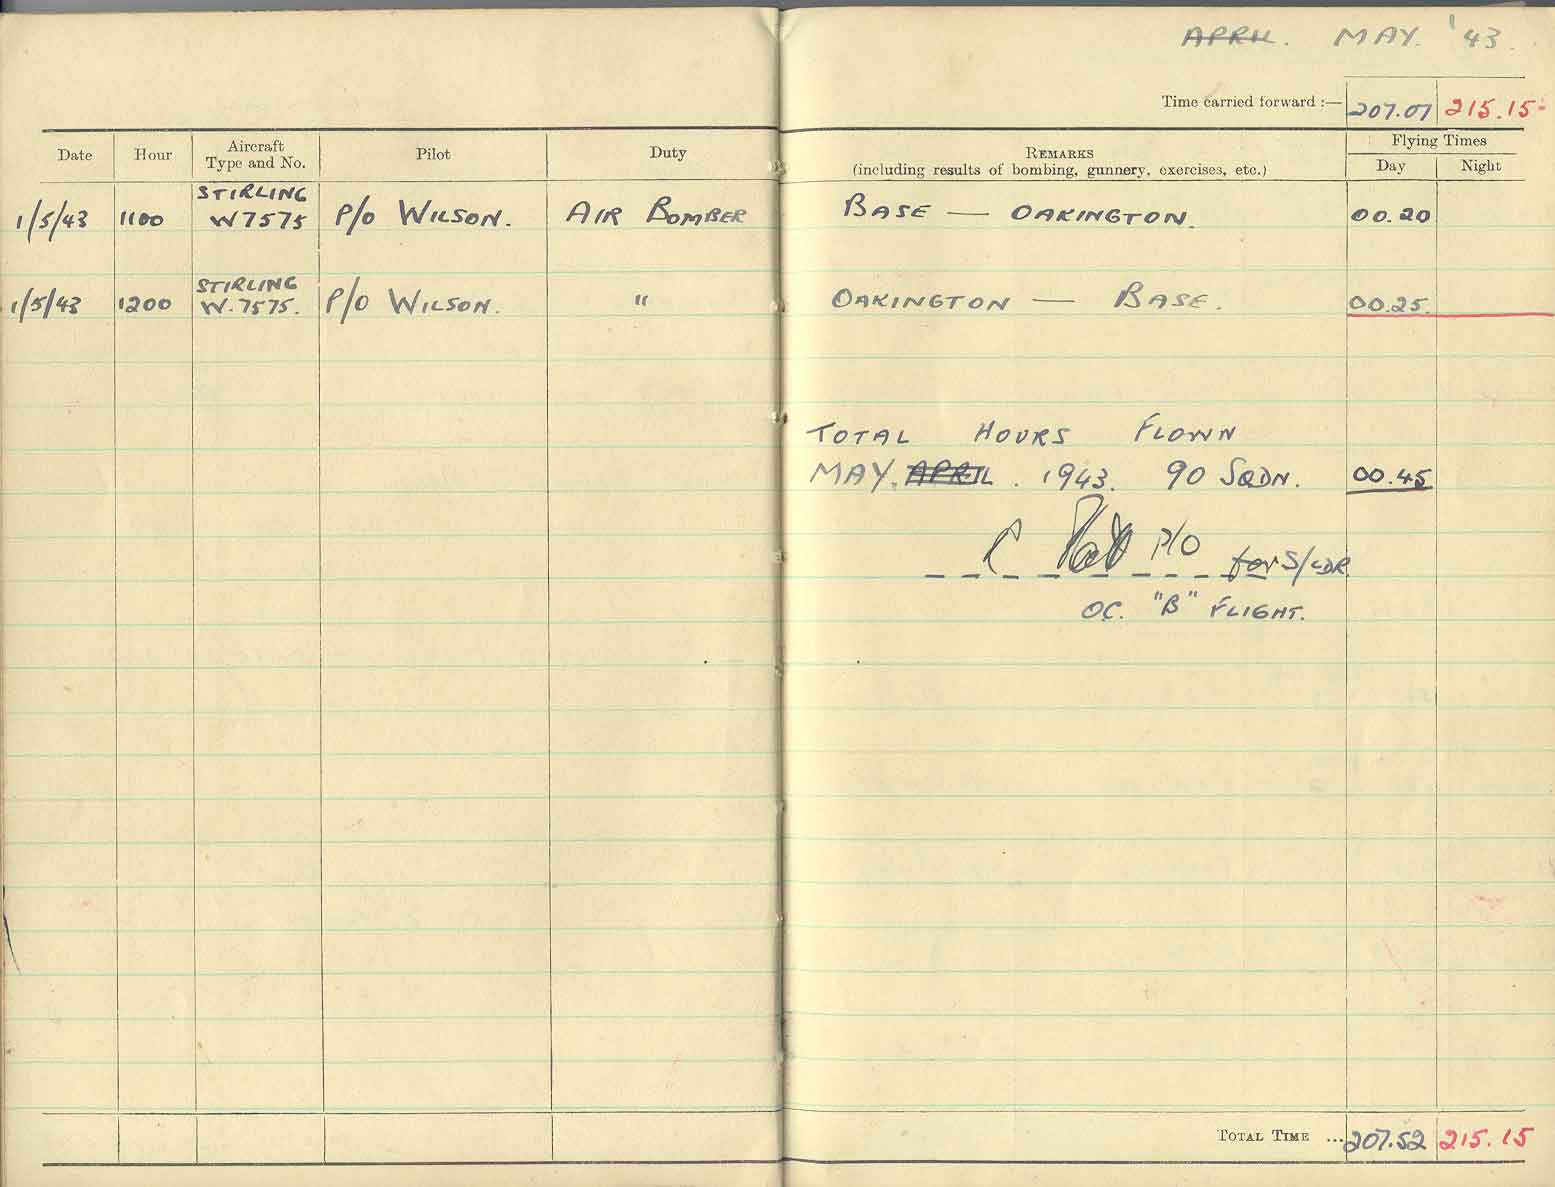 APRIL. MAY. '43.
Time carried forward :— 207.07 215.15
Date Hour Aircraft Type and No. Pilot Duty REMARKS (including results of bombing, gunnery, exercises, etc.) Flying Times Day Night
1/5/43 1100 STIRLING W7575 P/O WILSON. AIR BOMBER BASE — OAKINGTON. 00.20
1/5/43 1200 STIRLING W.7575. P/O WILSON. " OAKINGTON — BASE. 00.25.
TOTAL HOURS FLOWN
MAY. APRIL. 1943. 90 SQDN. 00.45
P/O for S/LDR.
OC. "B" FLIGHT.
TOTAL TIME ... 207.52 215.15